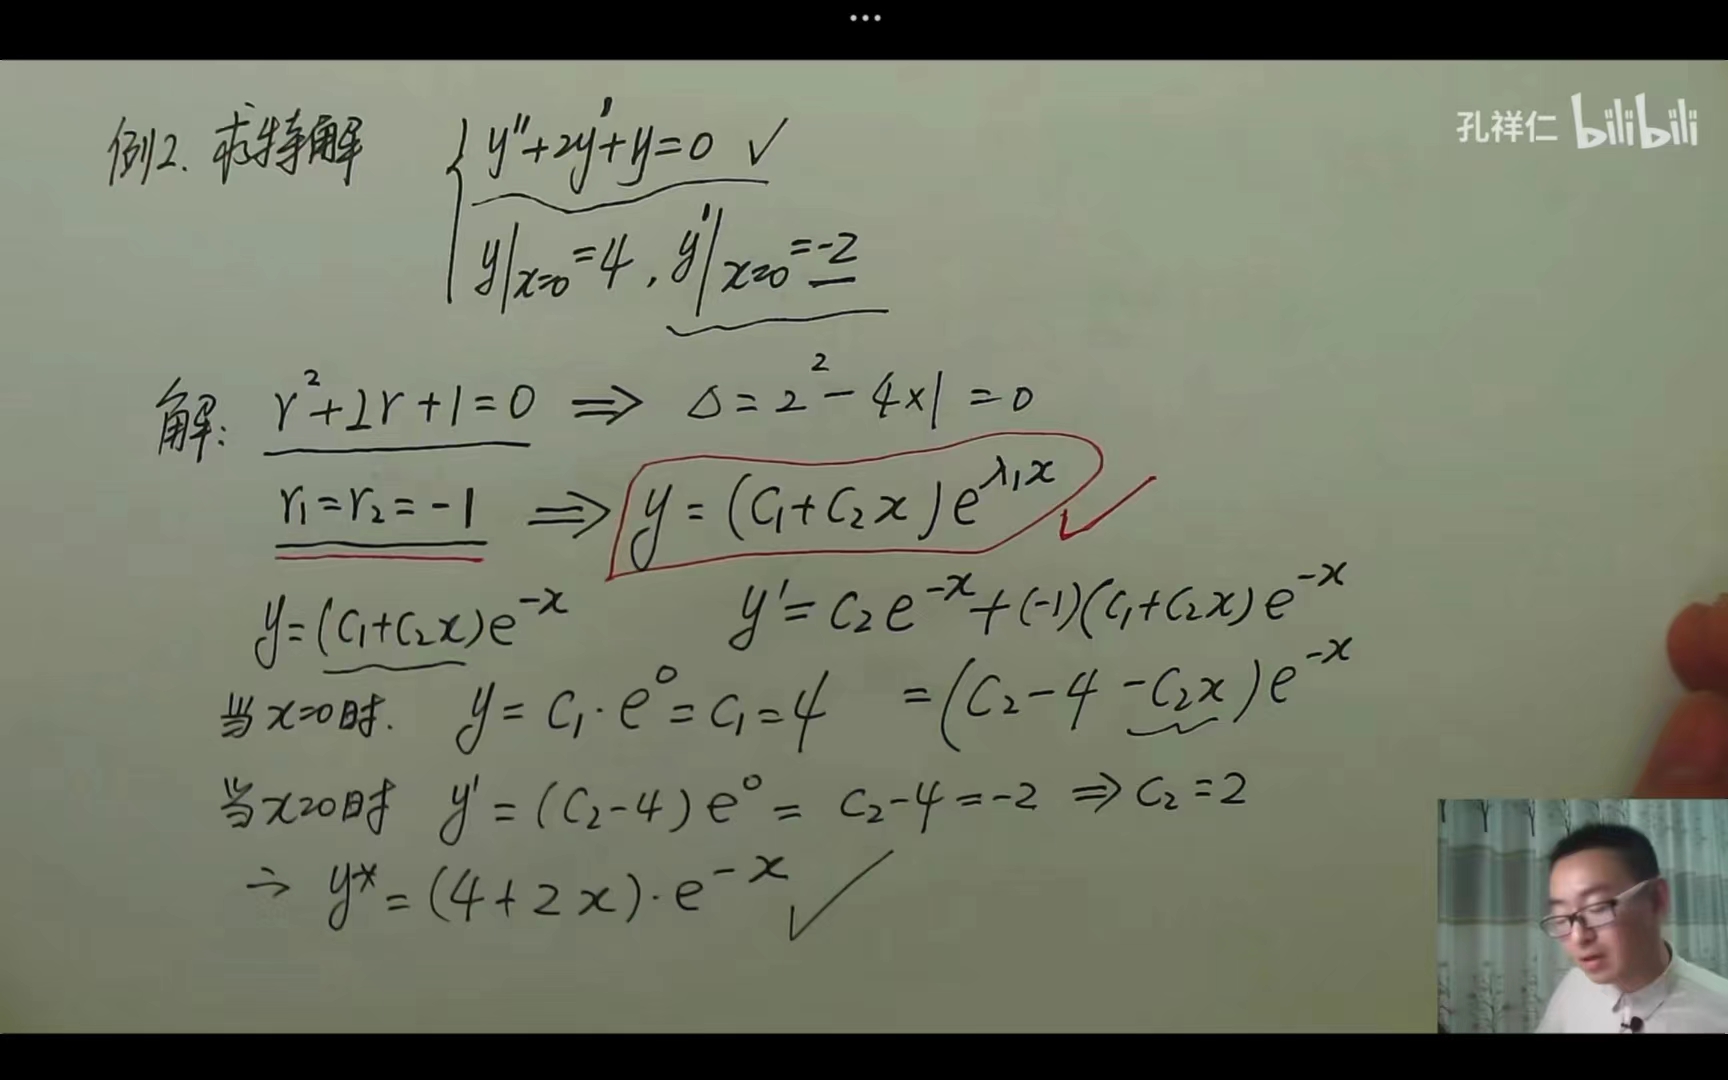 ...
孔祥仁 bilibili
例2. 求特解 { y''+2y'+y=0 ✓
y|x=0 =4, y'|x=0 =-2
解: r²+2r+1=0 ⇒ Δ=2²-4×1=0
r₁=r₂=-1 ⇒ y=(C₁+C₂x)e^λ₁x ✓
y=(C₁+C₂x)e^-x y'=C₂e^-x+(-1)(C₁+C₂x)e^-x
当x=0时. y=C₁·e⁰=C₁=4 =(C₂-4-C₂x)e^-x
当x=0时 y'=(C₂-4)e⁰=C₂-4=-2 ⇒ C₂=2
⇒ y*=(4+2x)·e^-x ✓